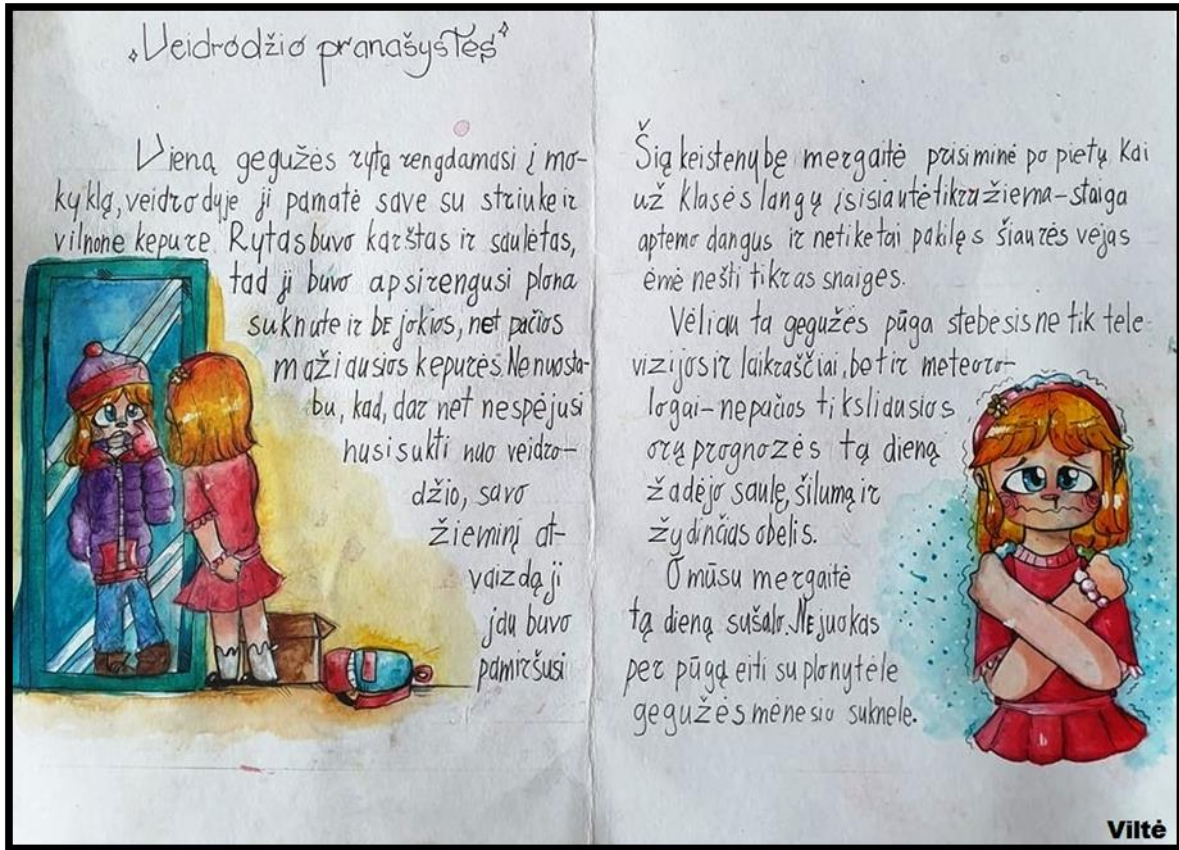 „Veidrodžio pranašystės“
Vieną gegužės rytą rengdamasi į mo-
kyklą, veidrodyje ji pamatė save su striuke ir
vilnone kepure. Rytas buvo karštas ir saulėtas,
tad ji buvo apsirengusi plona
suknute ir be jokios, net pačios
mažiausios kepurės. Nenuosta-
bu, kad, dar net nespėjusi
nusisukti nuo veidro-
džio, savo
žieminį at-
vaizdą ji
jau buvo
pamiršusi
Šią keistenybę mergaitė prisiminė po pietų. Kai
už klasės langų įsisiautė tikra žiema-staiga
aptemo dangus ir netikėtai pakilęs šiaurės vėjas
ėmė nešti tikras snaiges.
Vėliau ta gegužės pūga stebėsis ne tik tele-
vizijos ir laikraščiai, bet ir meteoro-
logai-nepačios tiksliausios
orų prognozės tą dieną
žadėjo saulę, šilumą ir
žydinčias obelis.
O mūsų mergaitė
tą dieną sušalo. Ne juokas
per pūgą eiti su plonytėle
gegužės mėnesio suknele.
Viltė